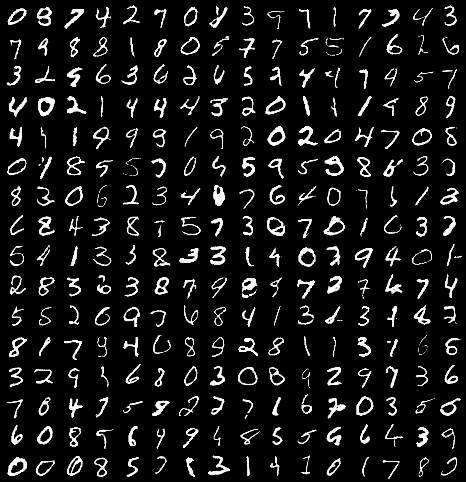 0 8 7 4 2 7 0 3 9 7 1 7 4 3
7 9 8 8 1 8 0 5 7 7 5 5 1 6 2 6
3 2 9 6 3 6 2 6 5 2 4 4 7 9 5 7
4 0 2 1 4 4 4 3 2 0 1 1 1 9 8 9
4 1 1 9 9 9 1 9 2 0 2 0 4 7 0 8
0 4 8 5 5 7 0 4 5 9 5 9 8 8 3 7
8 3 0 6 2 3 4 0 7 6 4 0 7 1 1 2
6 8 4 3 8 7 5 7 3 0 7 0 1 0 3 2
5 4 1 3 3 8 3 3 1 4 0 2 9 4 0 1
2 8 3 6 3 8 7 9 8 9 7 2 7 6 7 4
5 5 2 0 9 7 6 8 4 1 3 2 3 1 6 2
8 1 7 9 4 0 8 9 2 8 1 1 3 7 6 5
3 2 9 1 6 8 0 3 0 8 9 2 9 7 3 6
7 0 4 7 5 8 2 2 7 1 6 2 0 3 5 0
6 0 8 5 6 4 9 4 8 5 5 9 6 4 3 9
0 0 0 8 5 7 1 3 1 4 1 0 1 7 8